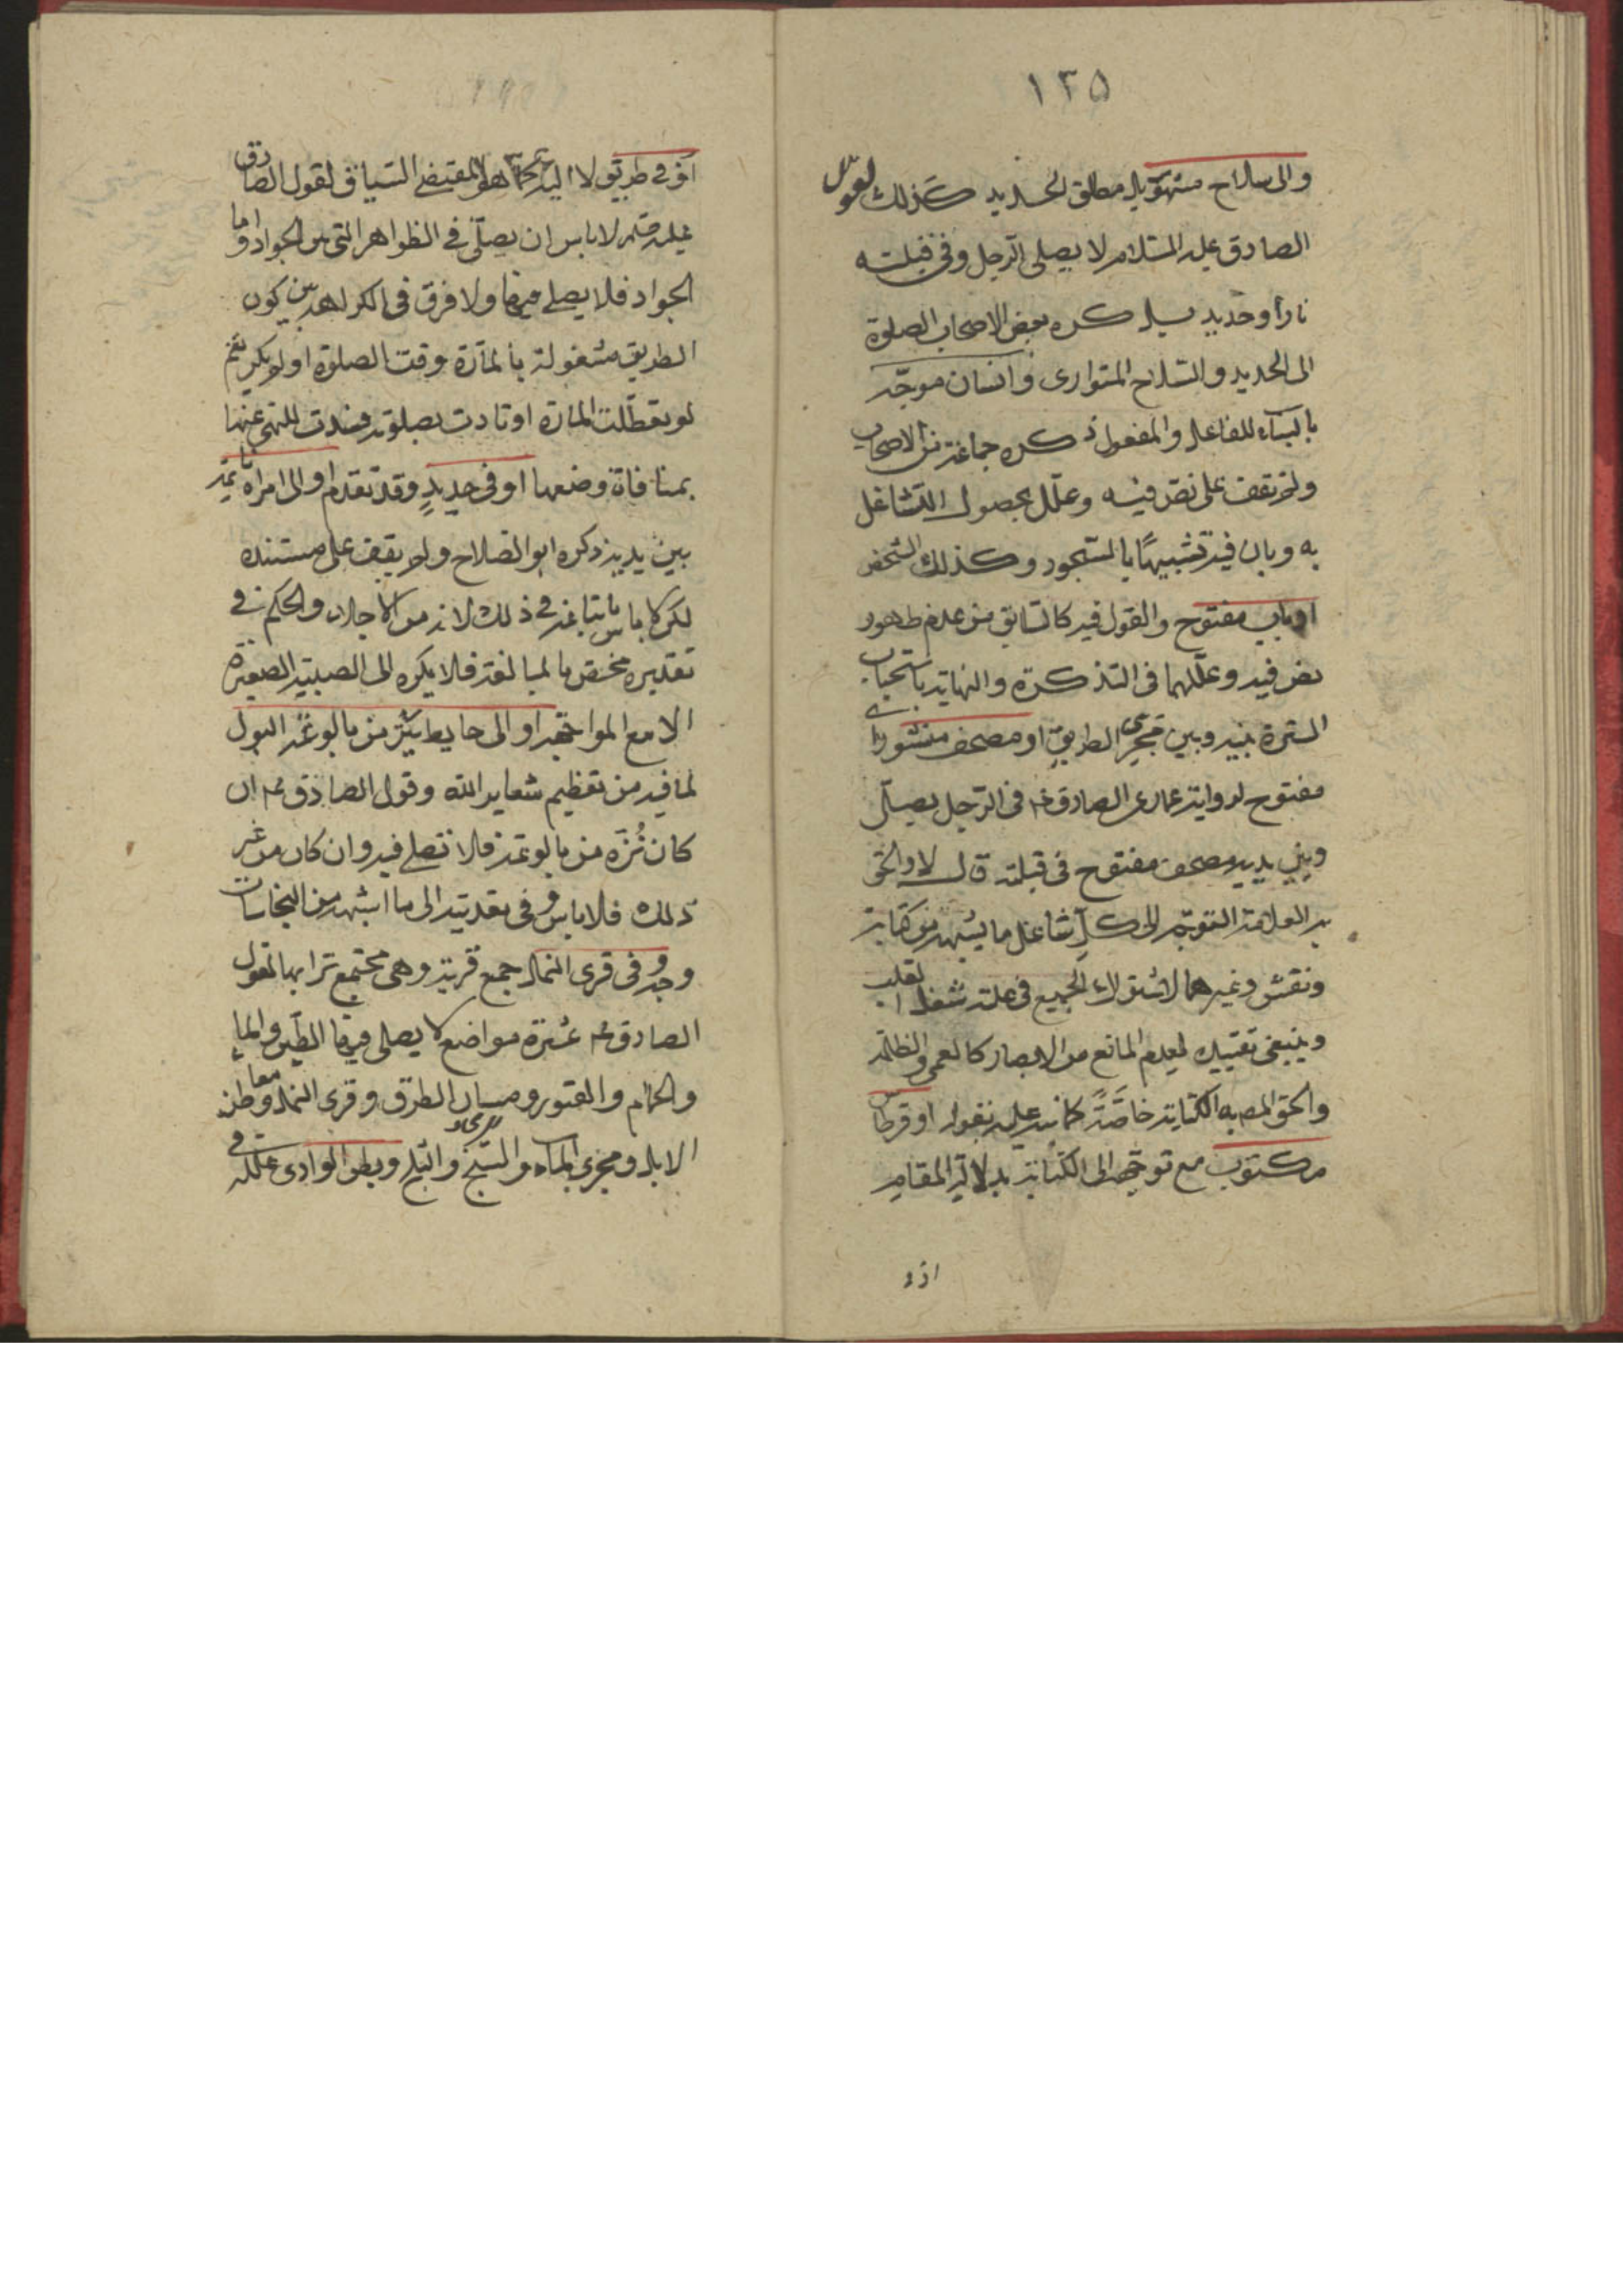 ١٣٥
والى سلاح مشهور بل مطلق الحديد كذلك لقول
الصادق عليه السلام لا يصلى الرجل وفي قبلته
نار أو حديد بل كره بعض الاصحاب الصلوة
الى الحديد والسلاح المتوارى وانسان مواجه
بالبناء للفاعل والمفعول ذكره جماعة من الاصحاب
ولم نقف على نص فيه وعلل بحصول التشاغل
به وبان فيه تشبيها بالسجود وكذلك الشخص
او باب مفتوح والقول فيه كالسابق من عدم ظهور
نص فيه وعللهما فى التذكرة والنهاية باستحباب
السترة بينه وبين مجرى الطريق او مصحف منشور اى
مفتوح لرواية عمار عن الصادق ع فى الرجل يصلى
وبين يديه مصحف مفتوح فى قبلته قال لا والحق
به العلامة التوجه الى كل شاغل ما يشبهه من كتابة
ونقش وغيرهما لاشتراك الجميع فى علة شغل القلب
وينبغى تقييده بعدم المانع من الابصار كالعمى والظلمة
والحق المص به الكتابة خاصة كما نبه عليه بقوله او قرطاس
مكتوب مع توجهه الى الكتابة بدلالة المقام
او فى
او فى طريق لا اليه كما هو المقتضى السياق لقول الصادق
عليه السلم لا باس ان يصلى فى الظواهر التى بين الجواد واما
الجواد فلا يصلى فيها ولا فرق فى الكراهة بين كون
الطريق مشغولة بالمارة وقت الصلوة او لم يكن نعم
لو تعطلت المارة او تأدت بصلوته فسدت للنهى عنها
بمنافاة وضعها او فى حديد وقد تقدم او الى امراة نائمة
بين يديه ذكره ابو الصلاح ولم يقف على مستنده
لكن لا باس بمتابعته فى ذلك لانه من الاجلاء والحكم فى
تقديره مختص بالبالغة فلا يكره الى الصبية الصغيرة
الا مع المواجهة او الى حايط ينز من بالوعة البول
لما فيه من تعظيم شعاير الله وقول الصادق ع ان
كان نزه من بالوعة فلا تصلى فيه وان كان من غير
ذلك فلا باس وفى تعديته الى ما اشبهه من النجاسات
وجه وفى قرى النمل جمع قرية وهى مجتمع ترابها لقول
الصادق ع عشرة مواضع لا يصلى فيها الطين والماء
والحمام والقبور ومسان الطرق وقرى النمل ومعاطن
الابل ومجرى الماء والسبخ والثلج وبطن الوادى علله فى